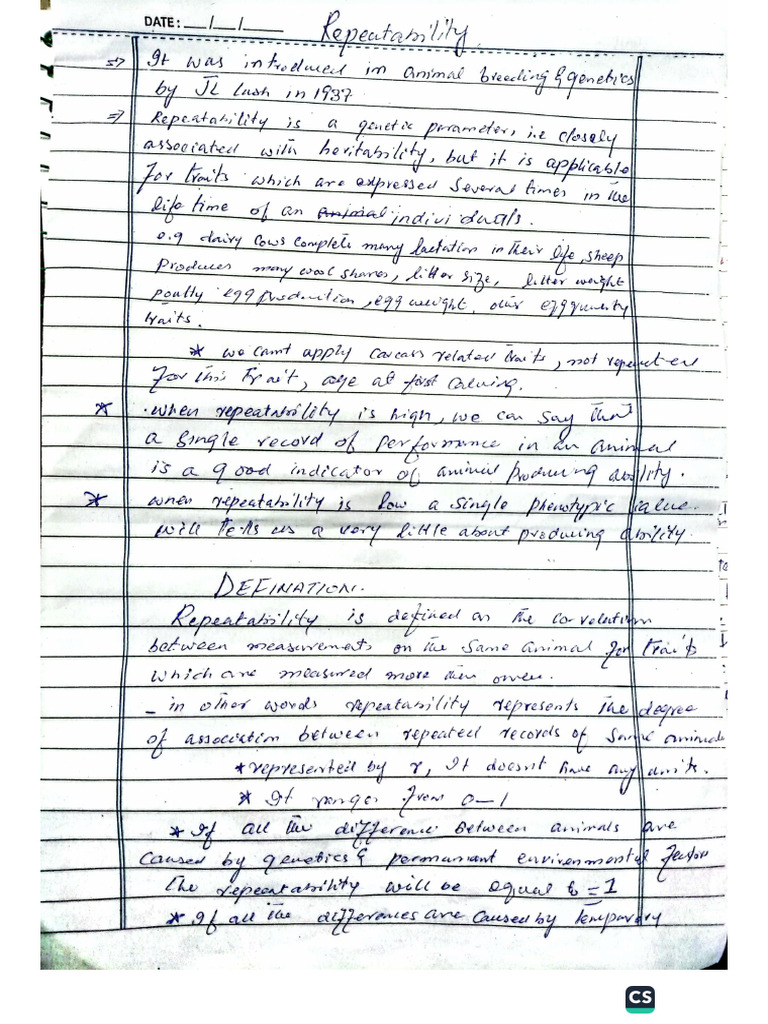 DATE: __/__/____ Repeatability.
=> It was introduced in animal breeding & genetics
by JL Lush in 1937
=> Repeatability is a genetic parameter, i.e closely
associated with heritability, but it is applicable
for traits which are expressed several times in the
life time of an animal individuals.
e.g dairy cows complete many lactation in their life, sheep
produces many wool shares, litter size, litter weight
poultry egg production, egg weight, egg
traits.
* we cant apply carcass related traits, not
for this trait, age at first calving.
* . when repeatability is high, we can say that
a single record of performance in an animal
is a good indicator of animal producing ability.
* when repeatability is low a single phenotypic value
will tells us a very little about producing ability.
DEFINATION.
Repeatability is defined as the correlation
between measurements on the same animal for traits
which are measured more then once.
– in other words repeatability represents the degree
of association between repeated records of same animal
* represented by r, It doesnt have any units.
* It ranges from 0–1
* If all the difference between animals are
caused by genetics & permanant environmental factors
the repeatability will be equal to = 1
* If all the differences are caused by Temporary
CS